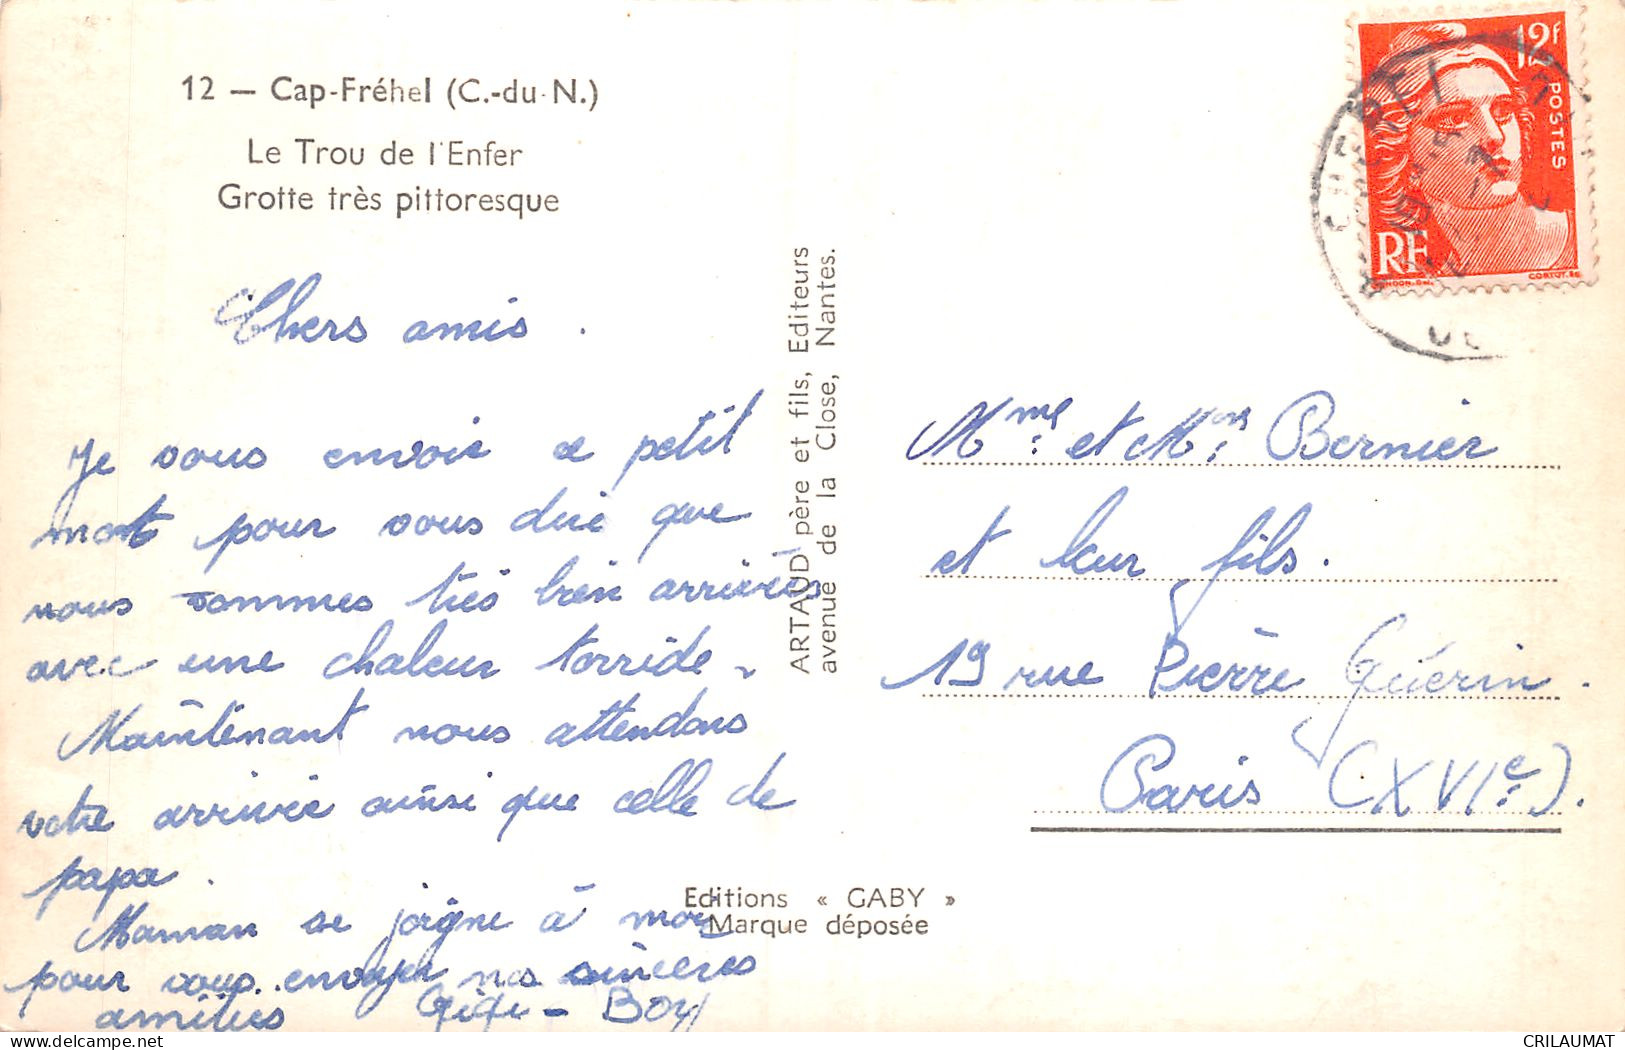 12 — Cap-Fréhel (C.-du-N.)
Le Trou de l'Enfer
Grotte très pittoresque
Chers amis.
Je vous envoie ce petit
mot pour vous dire que
nous sommes très bien arrivées
avec une chaleur torride.
Maintenant nous attendons
votre arrivée ainsi que celle de
papa.
Maman se joigne à moi
pour vous envoyer nos sincères
amitiés Gigi - Boy
ARTAUD père et fils, Editeurs
avenue de la Close, Nantes.
Editions « GABY »
Marque déposée
12f
POSTES
RF
Mme. et Mon. Bernier
et leur fils.
19 rue Pierre Guérin.
Paris (XVIe).
CRILAUMAT